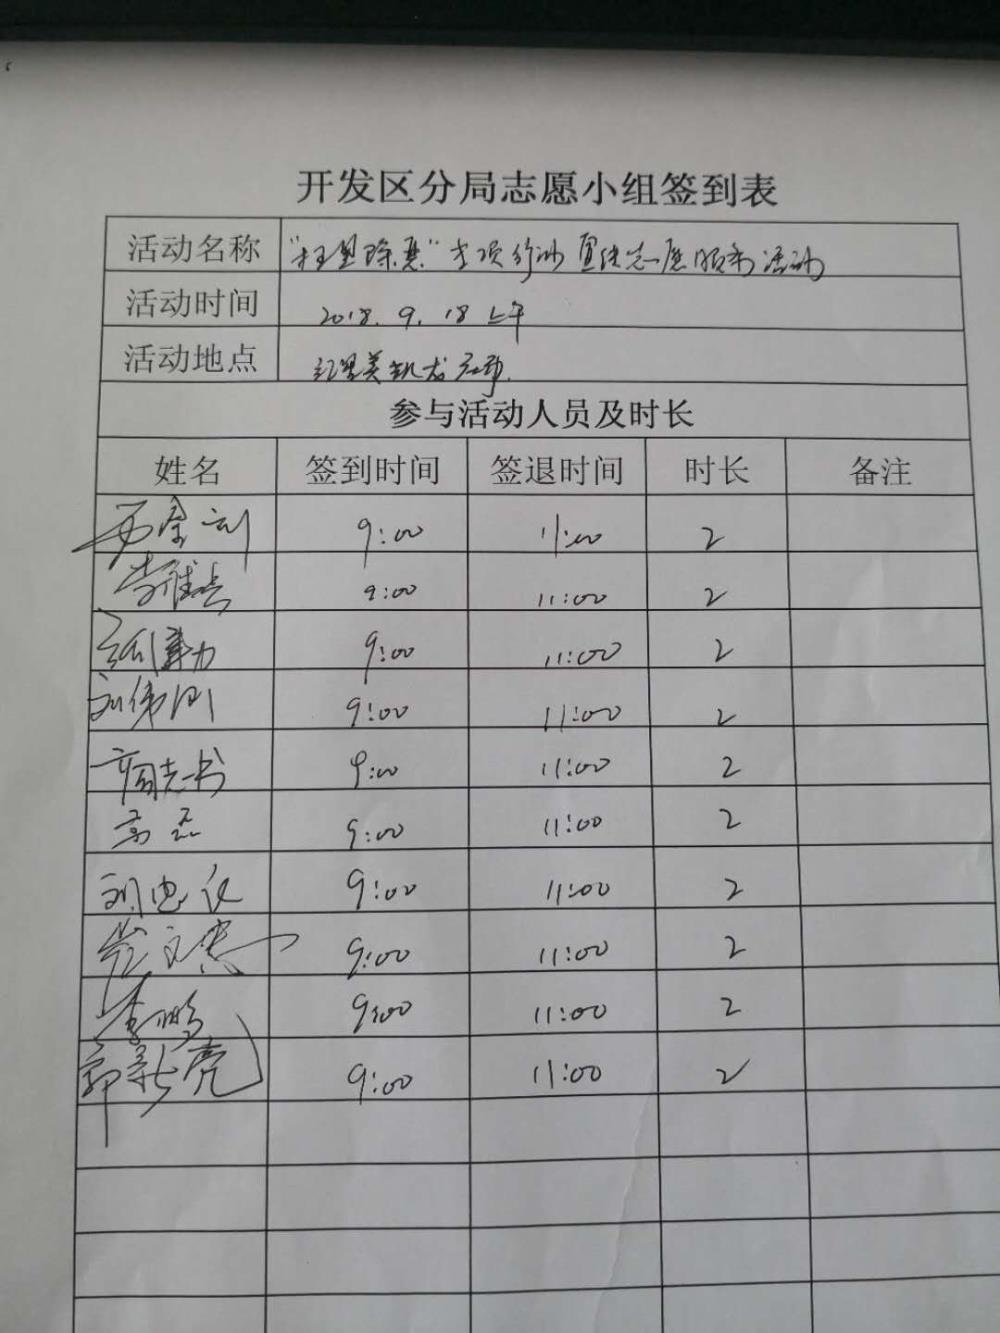 开发区分局志愿小组签到表
活动名称 "扫黑除恶"专项行动宣传志愿服务活动
活动时间 2018.9.18上午
活动地点 红星美凯龙
参与活动人员及时长
姓名 签到时间 签退时间 时长 备注
9:00 11:00 2
9:00 11:00 2
9:00 11:00 2
刘伟刚 9:00 11:00 2
9:00 11:00 2
高磊 9:00 11:00 2
刘忠仪 9:00 11:00 2
崔文杰 9:00 11:00 2
李鹏 9:00 11:00 2
郭新亮 9:00 11:00 2